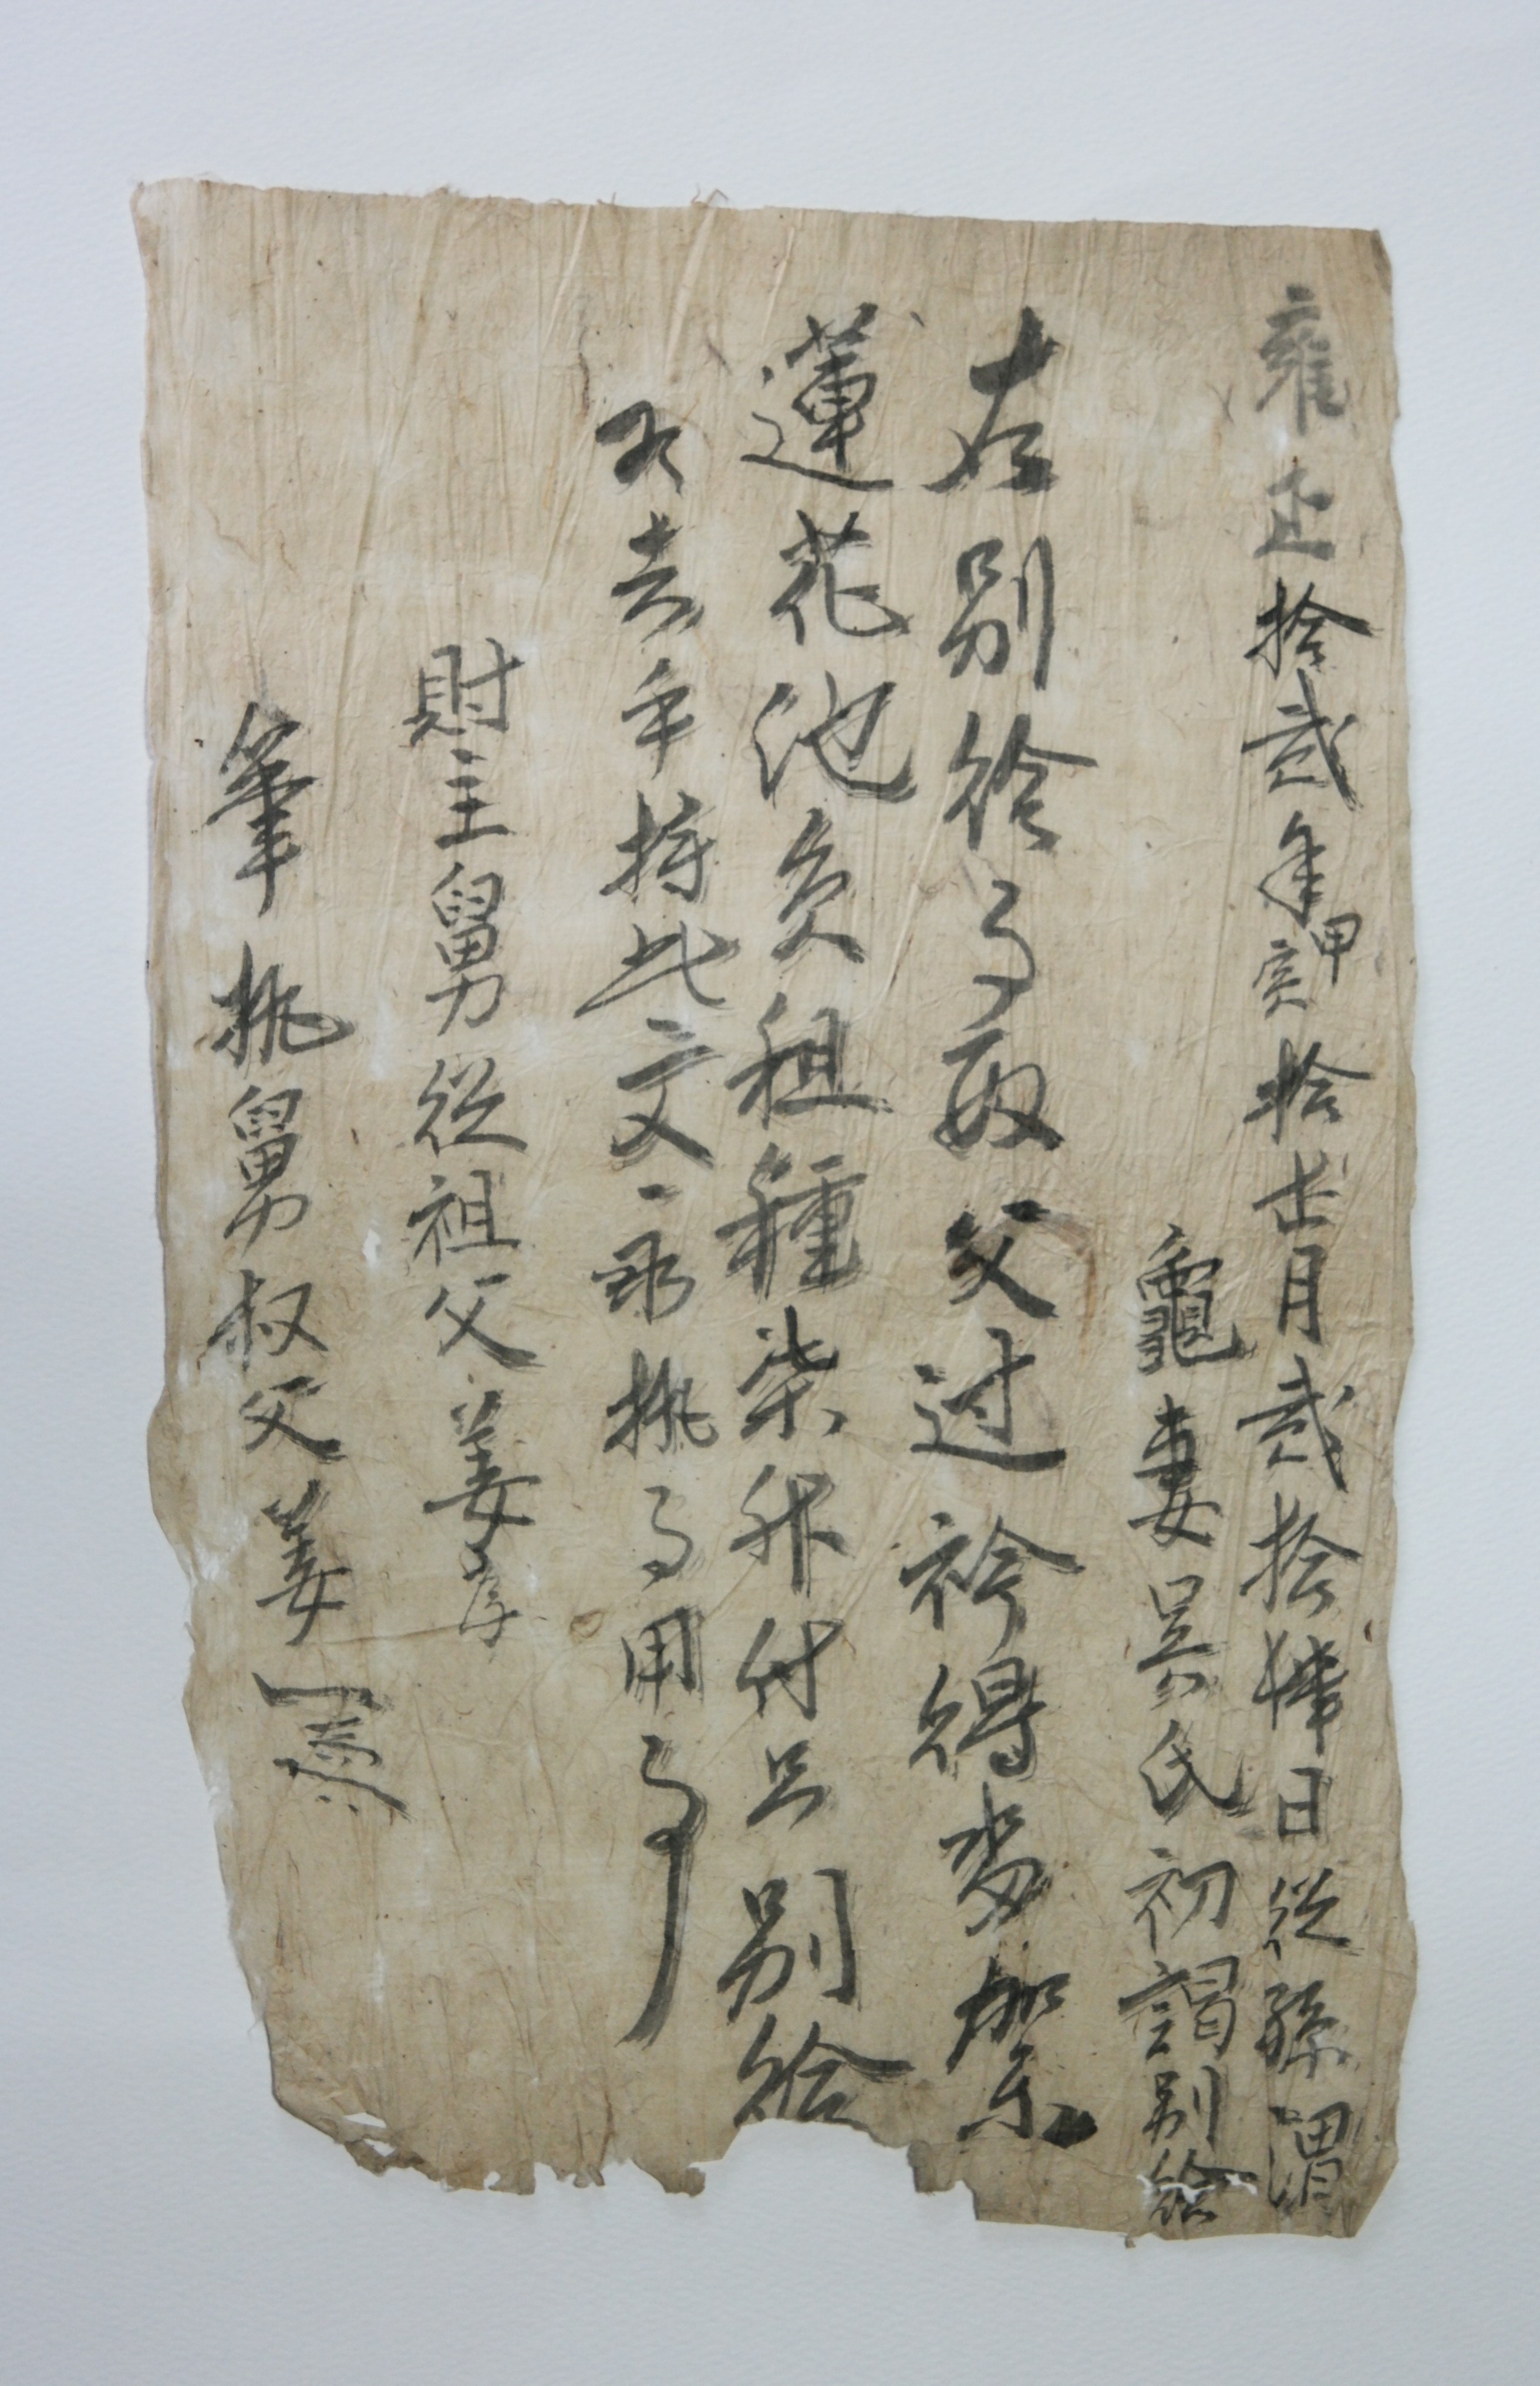 雍正拾貳年甲寅拾壹月貳拾肆日從孫渭
龜妻吳氏初謁別給
右別給事段父邊衿得畓加來
蓮花池員租種柒升付只別給
爲去乎持此文永執事用事
財主舅從祖父姜
筆執舅叔父姜